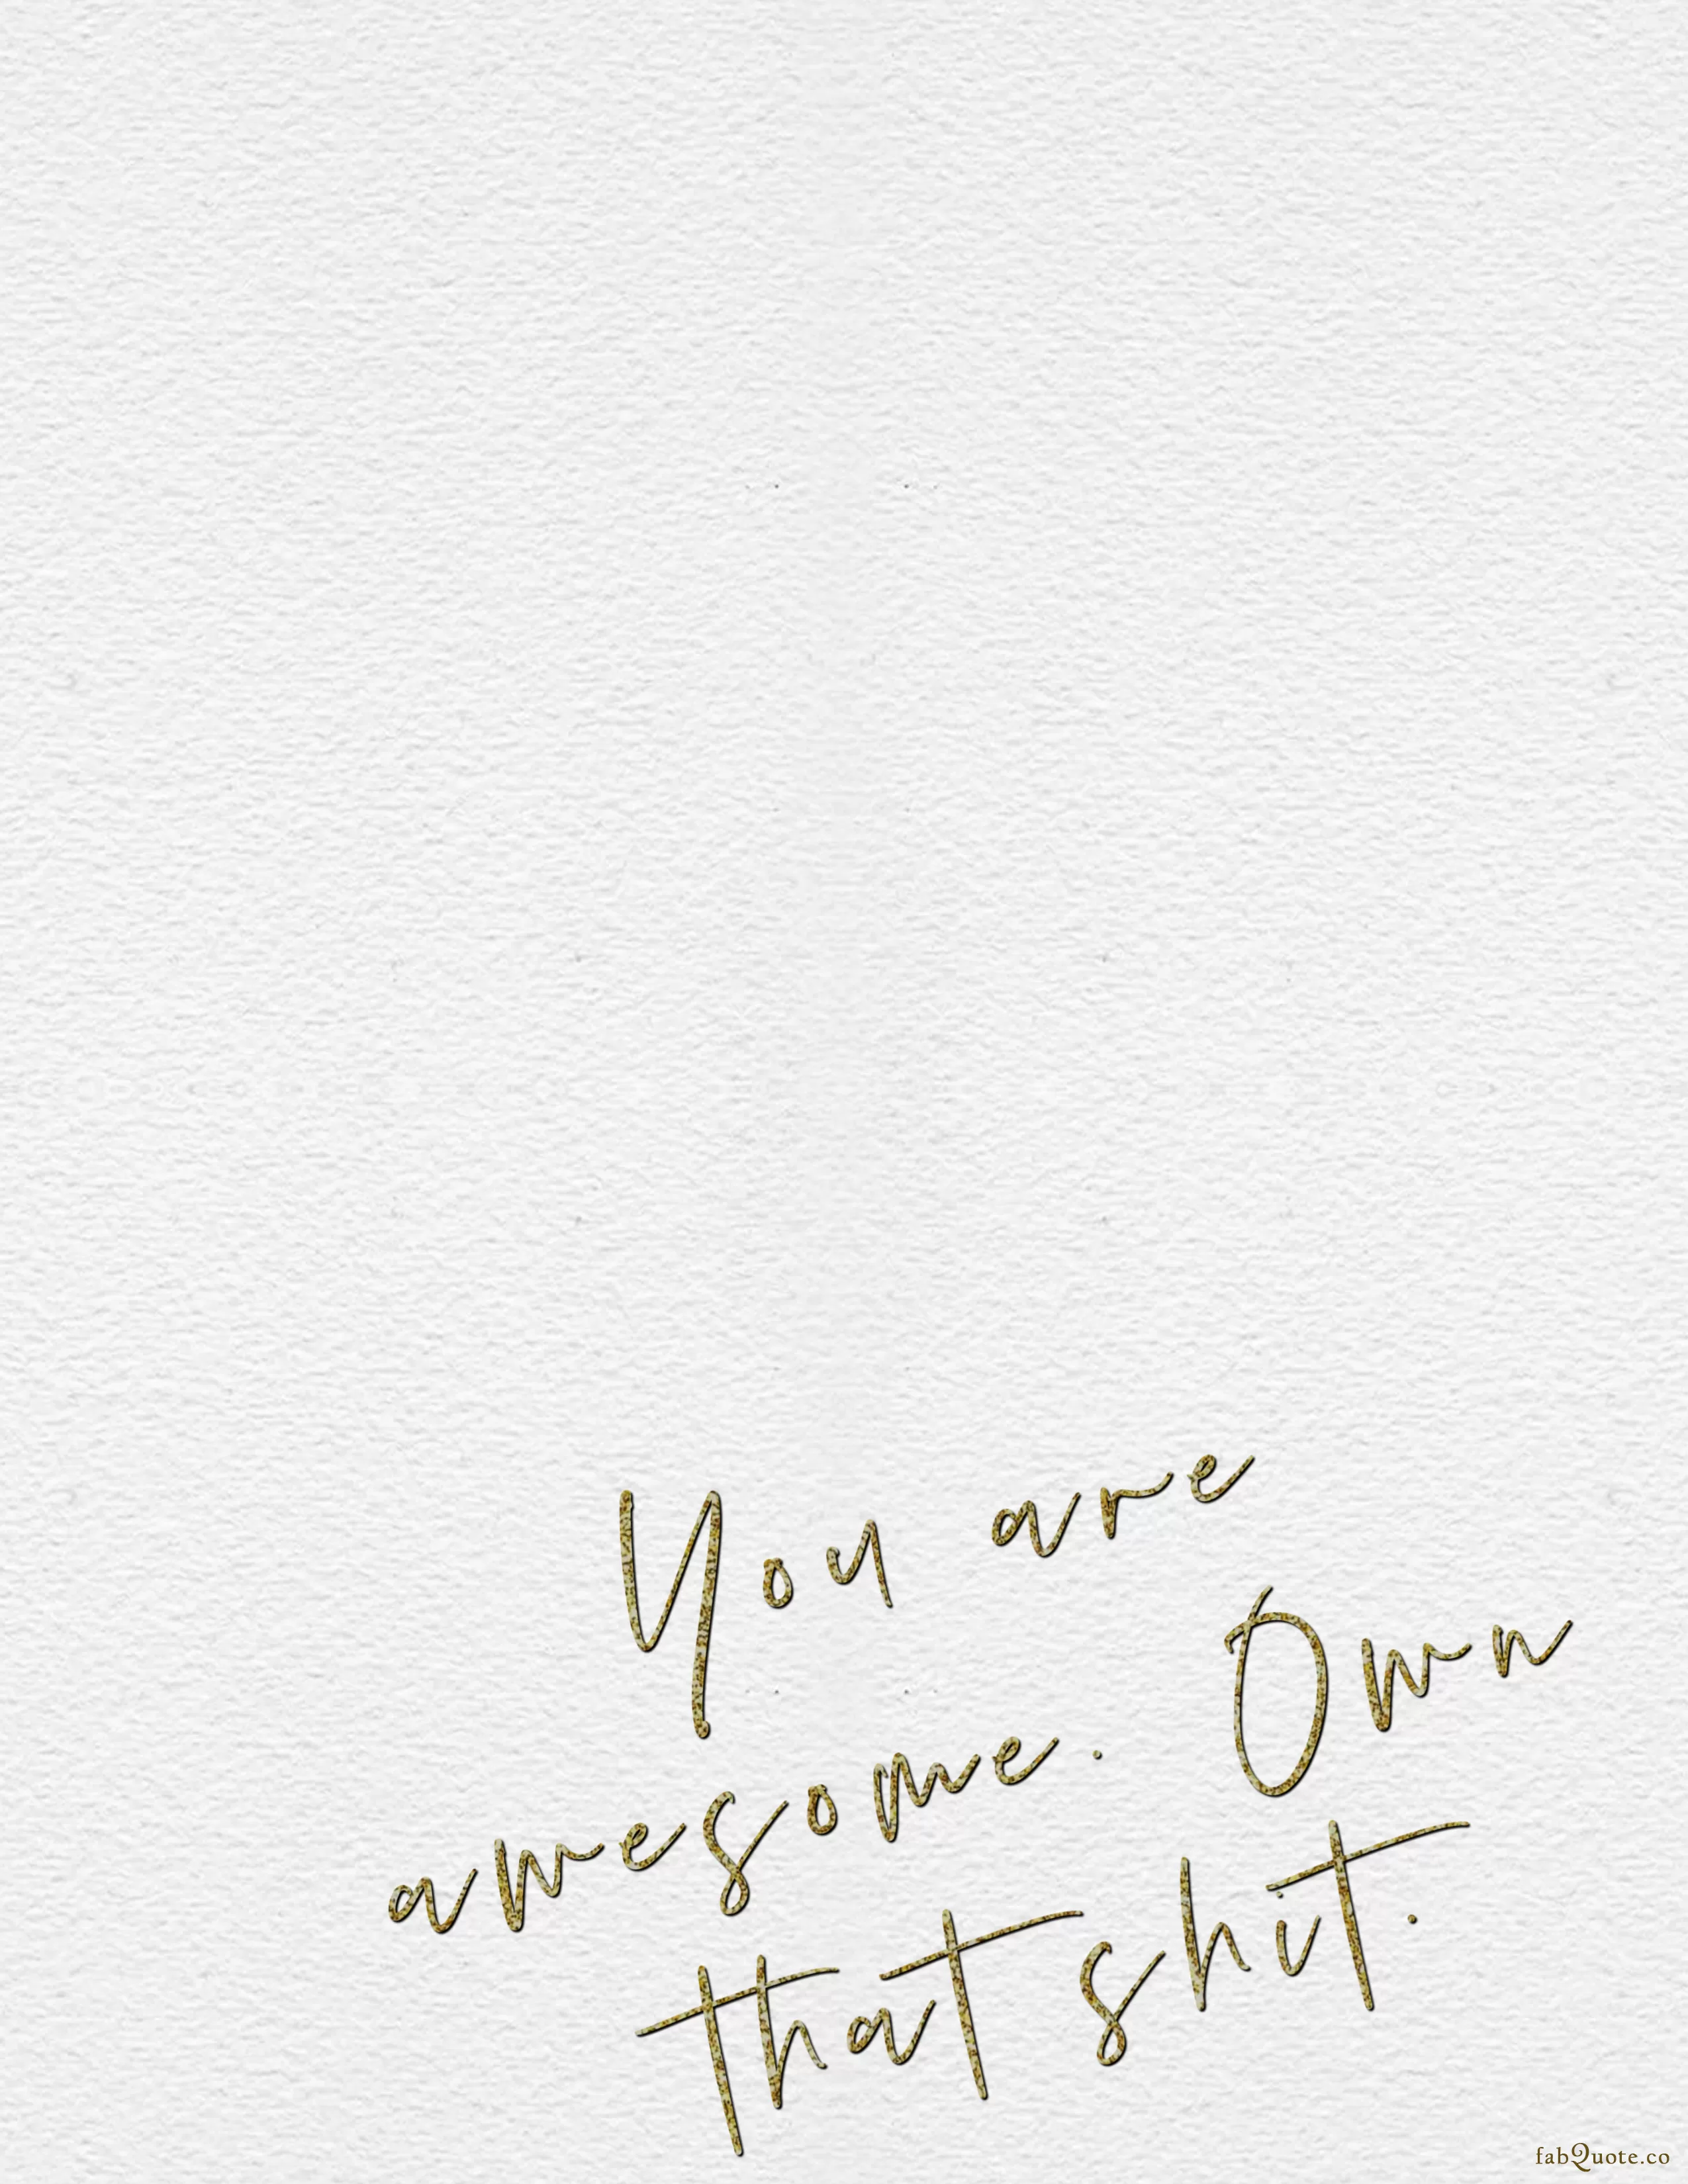 You are
awesome. Own
that shit.
fabQuote.co